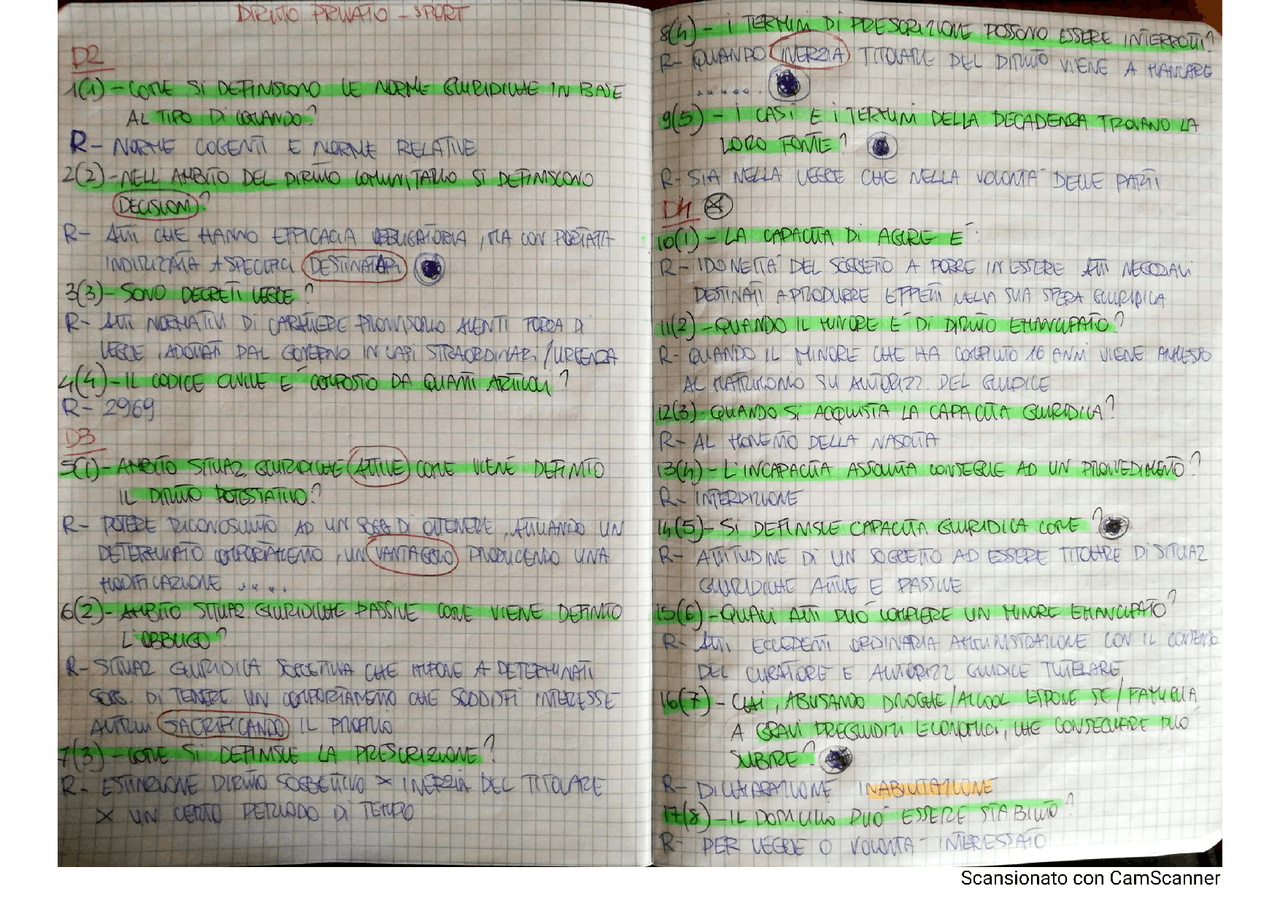 DIRITTO PRIVATO - SPORT
D2
1(1) - COME SI DEFINISCONO LE NORME GIURIDICHE IN BASE
AL TIPO DI COMANDO?
R - NORME COGENTI E NORME RELATIVE
2(2) - NELL'AMBITO DEL DIRITTO COMUNITARIO SI DEFINISCONO
DECISIONI?
R - ATTI CHE HANNO EFFICACIA OBBLIGATORIA, MA CON PORTATA
INDIRIZZATA A SPECIFICI DESTINATARI
3(3) - SONO DECRETI LEGGE?
R - ATTI NORMATIVI DI CARATTERE PROVVISORIO AVENTI FORZA DI
LEGGE, ADOTTATI DAL GOVERNO IN CASI STRAORDINARI/URGENZA
4(4) - IL CODICE CIVILE E' COMPOSTO DA QUANTI ARTICOLI?
R - 2969
D3
5(1) - AMBITO SITUAZ GIURIDICHE ATTIVE COME VIENE DEFINITO
IL DIRITTO POTESTATIVO?
R - POTERE RICONOSCIUTO AD UN SOGG DI OTTENERE, ATTUANDO UN
DETERMINATO COMPORTAMENTO, UN VANTAGGIO PRODUCENDO UNA
MODIFICAZIONE .....
6(2) - AMBITO SITUAZ GIURIDICHE PASSIVE COME VIENE DEFINITO
L'OBBLIGO?
R - SITUAZ GIURIDICA SOGGETTIVA CHE IMPONE A DETERMINATI
SOGG. DI TENERE UN COMPORTAMENTO CHE SODDISFI INTERESSE
ALTRUI SACRIFICANDO IL PROPRIO
7(3) - COME SI DEFINISCE LA PRESCRIZIONE?
R - ESTINZIONE DIRITTO SOGGETTIVO X INERZIA DEL TITOLARE
X UN CERTO PERIODO DI TEMPO
8(4) - I TERMINI DI PRESCRIZIONE POSSONO ESSERE INTERROTTI?
R - QUANDO INERZIA TITOLARE DEL DIRITTO VIENE A MANCARE
......
9(5) - I CASI E I TERMINI DELLA DECADENZA TROVANO LA
LORO FONTE?
R - SIA NELLA LEGGE CHE NELLA VOLONTA' DELLE PARTI
D4
10(1) - LA CAPACITA DI AGIRE E':
R - IDONEITA' DEL SOGGETTO A PORRE IN ESSERE ATTI NEGOZIALI
DESTINATI A PRODURRE EFFETTI NELLA SUA SFERA GIURIDICA
11(2) - QUANDO IL MINORE E' DI DIRITTO EMANCIPATO?
R - QUANDO IL MINORE CHE HA COMPIUTO 16 ANNI VIENE AMMESSO
AL MATRIMONIO SU AUTORIZZ. DEL GIUDICE
12(3) - QUANDO SI ACQUISTA LA CAPACITA GIURIDICA?
R - AL MOMENTO DELLA NASCITA
13(4) - L'INCAPACITA ASSOLUTA CONSEGUE AD UN PROVVEDIMENTO?
R - INTERDIZIONE
14(5) - SI DEFINISCE CAPACITA GIURIDICA COME?
R - ATTITUDINE DI UN SOGGETTO AD ESSERE TITOLARE DI SITUAZ
GIURIDICHE ATTIVE E PASSIVE
15(6) - QUALI ATTI PUO' COMPIERE UN MINORE EMANCIPATO?
R - ATTI ECCEDENTI ORDINARIA AMMINISTRAZIONE CON IL CONSENSO
DEL CURATORE E AUTORIZZ GIUDICE TUTELARE
16(7) - CHI, ABUSANDO DROGHE/ALCOOL ESPONE SE/FAMIGLIA
A GRAVI PREGIUDIZI ECONOMICI, CHE CONSEGUENZE PUO'
SUBIRE?
R - DICHIARAZIONE INABILITAZIONE
17(8) - IL DOMICILIO PUO' ESSERE STABILITO?
R - PER LEGGE O VOLONTA' INTERESSATO
Scansionato con CamScanner